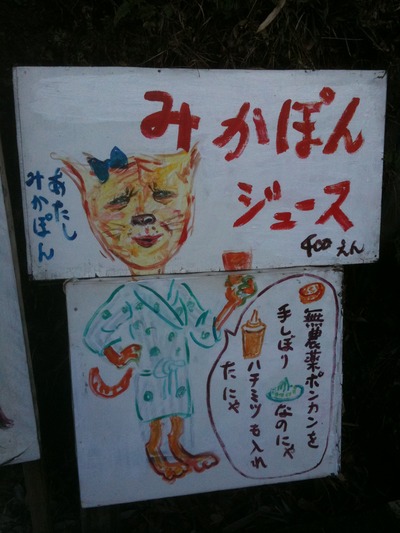 みかぽん
ジュース
400えん
あたし
みかぽん
無農薬ポンカンを
手しぼり
なのにゃ
ハチミツも入れ
たにゃ